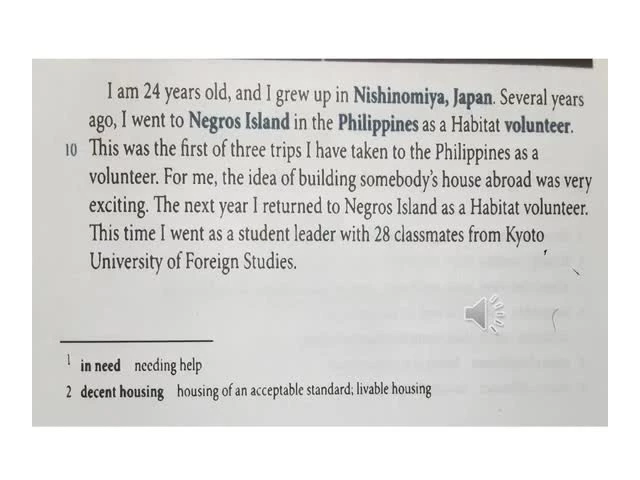 I am 24 years old, and I grew up in Nishinomiya, Japan. Several years
ago, I went to Negros Island in the Philippines as a Habitat volunteer.
10 This was the first of three trips I have taken to the Philippines as a
volunteer. For me, the idea of building somebody's house abroad was very
exciting. The next year I returned to Negros Island as a Habitat volunteer.
This time I went as a student leader with 28 classmates from Kyoto
University of Foreign Studies.
1 in need needing help
2 decent housing housing of an acceptable standard; livable housing